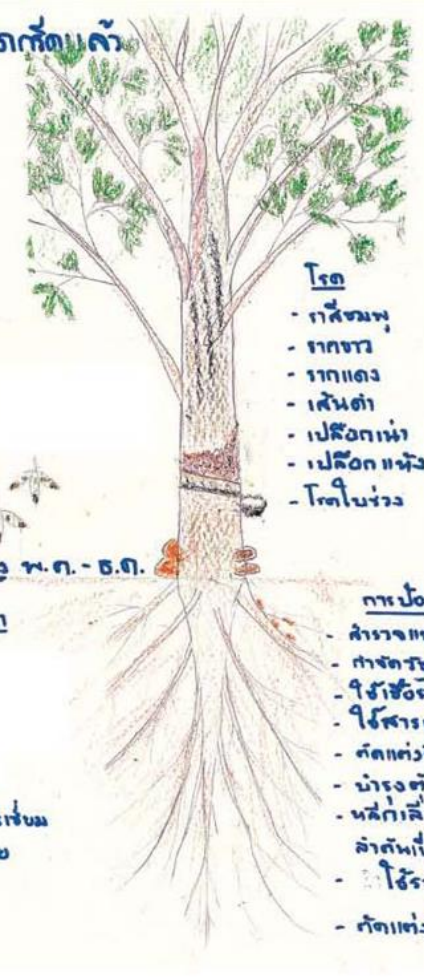 กรีดแล้ว
โรค
- ราสีชมพู
- รากขาว
- รากแดง
- เส้นดำ
- เปลือกเน่า
- เปลือกแห้ง
- โรคใบร่วง
พ.ค. - ธ.ค.
การป้อ
- สำรวจแ
- กำจัดวั
- ใช้เชื้อ
- ใช้สาร
- ตัดแต่ง
- บำรุงต้
- หลีกเลี่
ลำต้นเ
- ใช้ร
- ตัดแต่ง